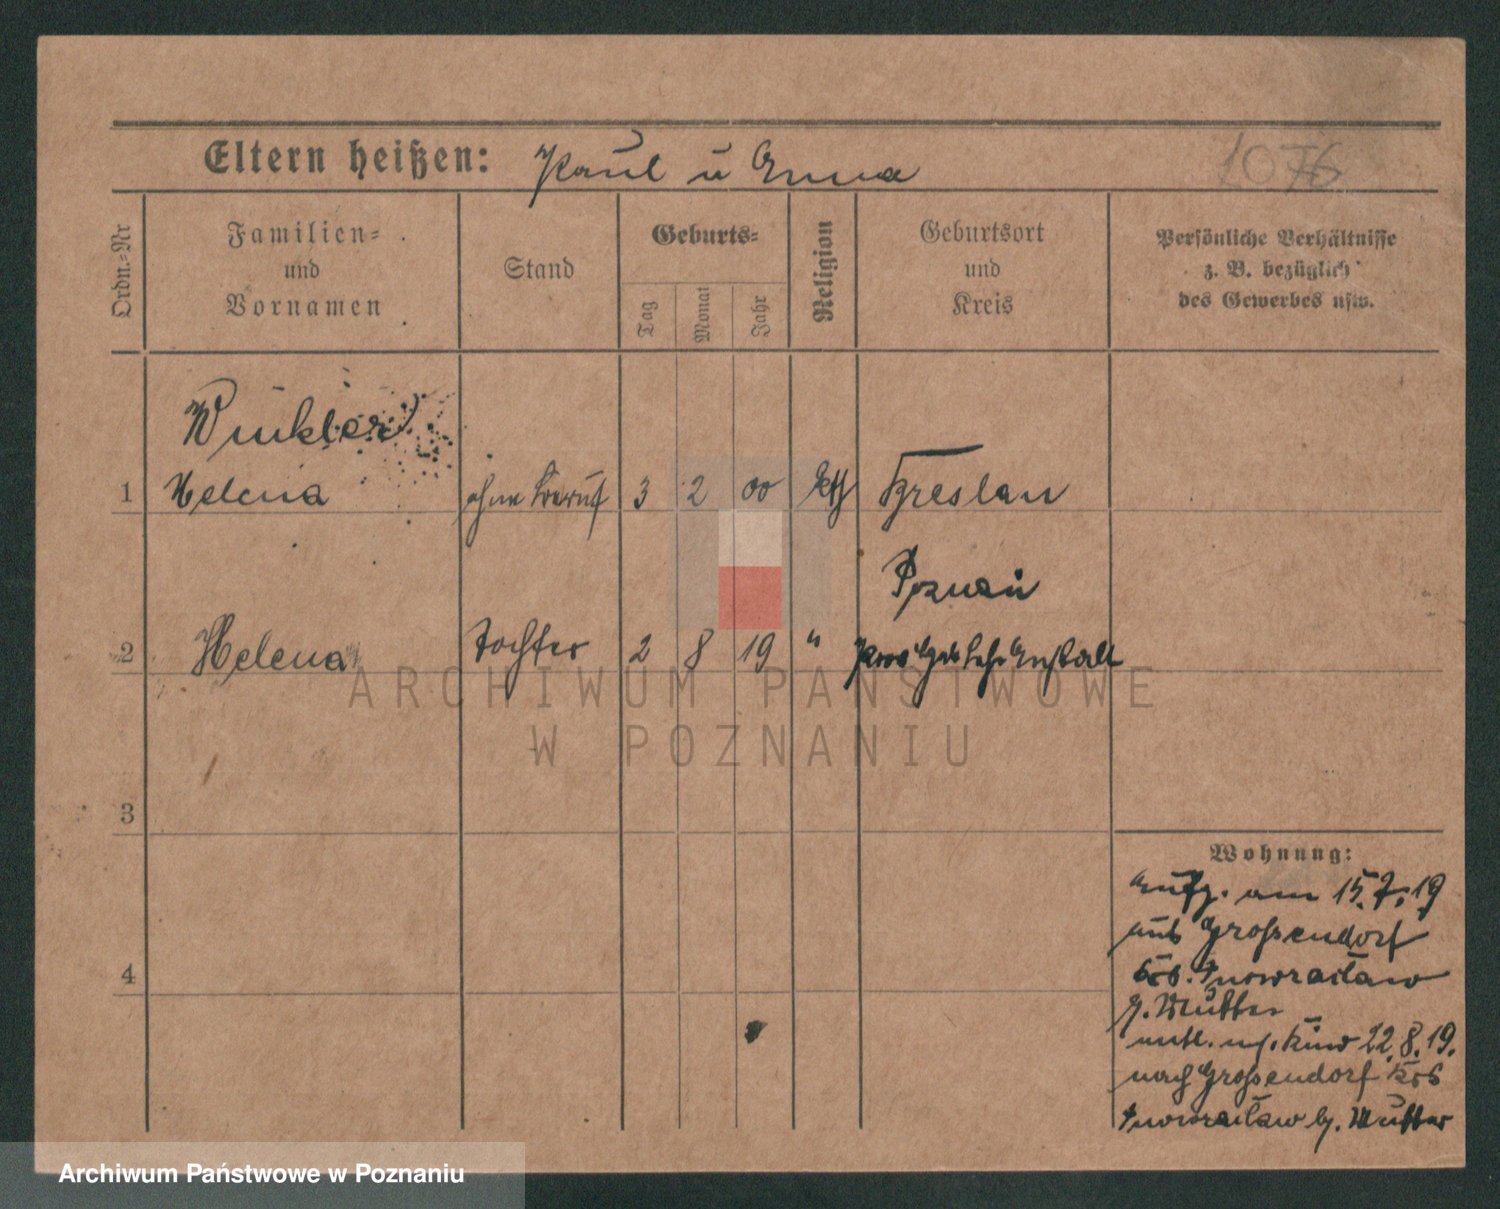 Eltern heißen: Paul u Emma
1076
Ordn.-Nr
Familien-
und
Vornamen
Stand
Geburts-
Tag
Monat
Jahr
Religion
Geburtsort
und
Kreis
Persönliche Verhältnisse
z. B. bezüglich
des Gewerbes usw.
Winkler
1 Helena ohne Beruf 3 2 00 kth Breslau
Poznań
2 Helena Tochter 2 8 19 " Prov Heb Lehr Anstalt
ARCHIWUM PAŃSTWOWE
W POZNANIU
3
4
Wohnung:
Aufg. am 15.7.19
aus Grossendorf
Krs. Inowracław
b. Mutter
entl. m. Kind 22.8.19.
nach Grossendorf Krs
Inowracław b. Mutter
Archiwum Państwowe w Poznaniu